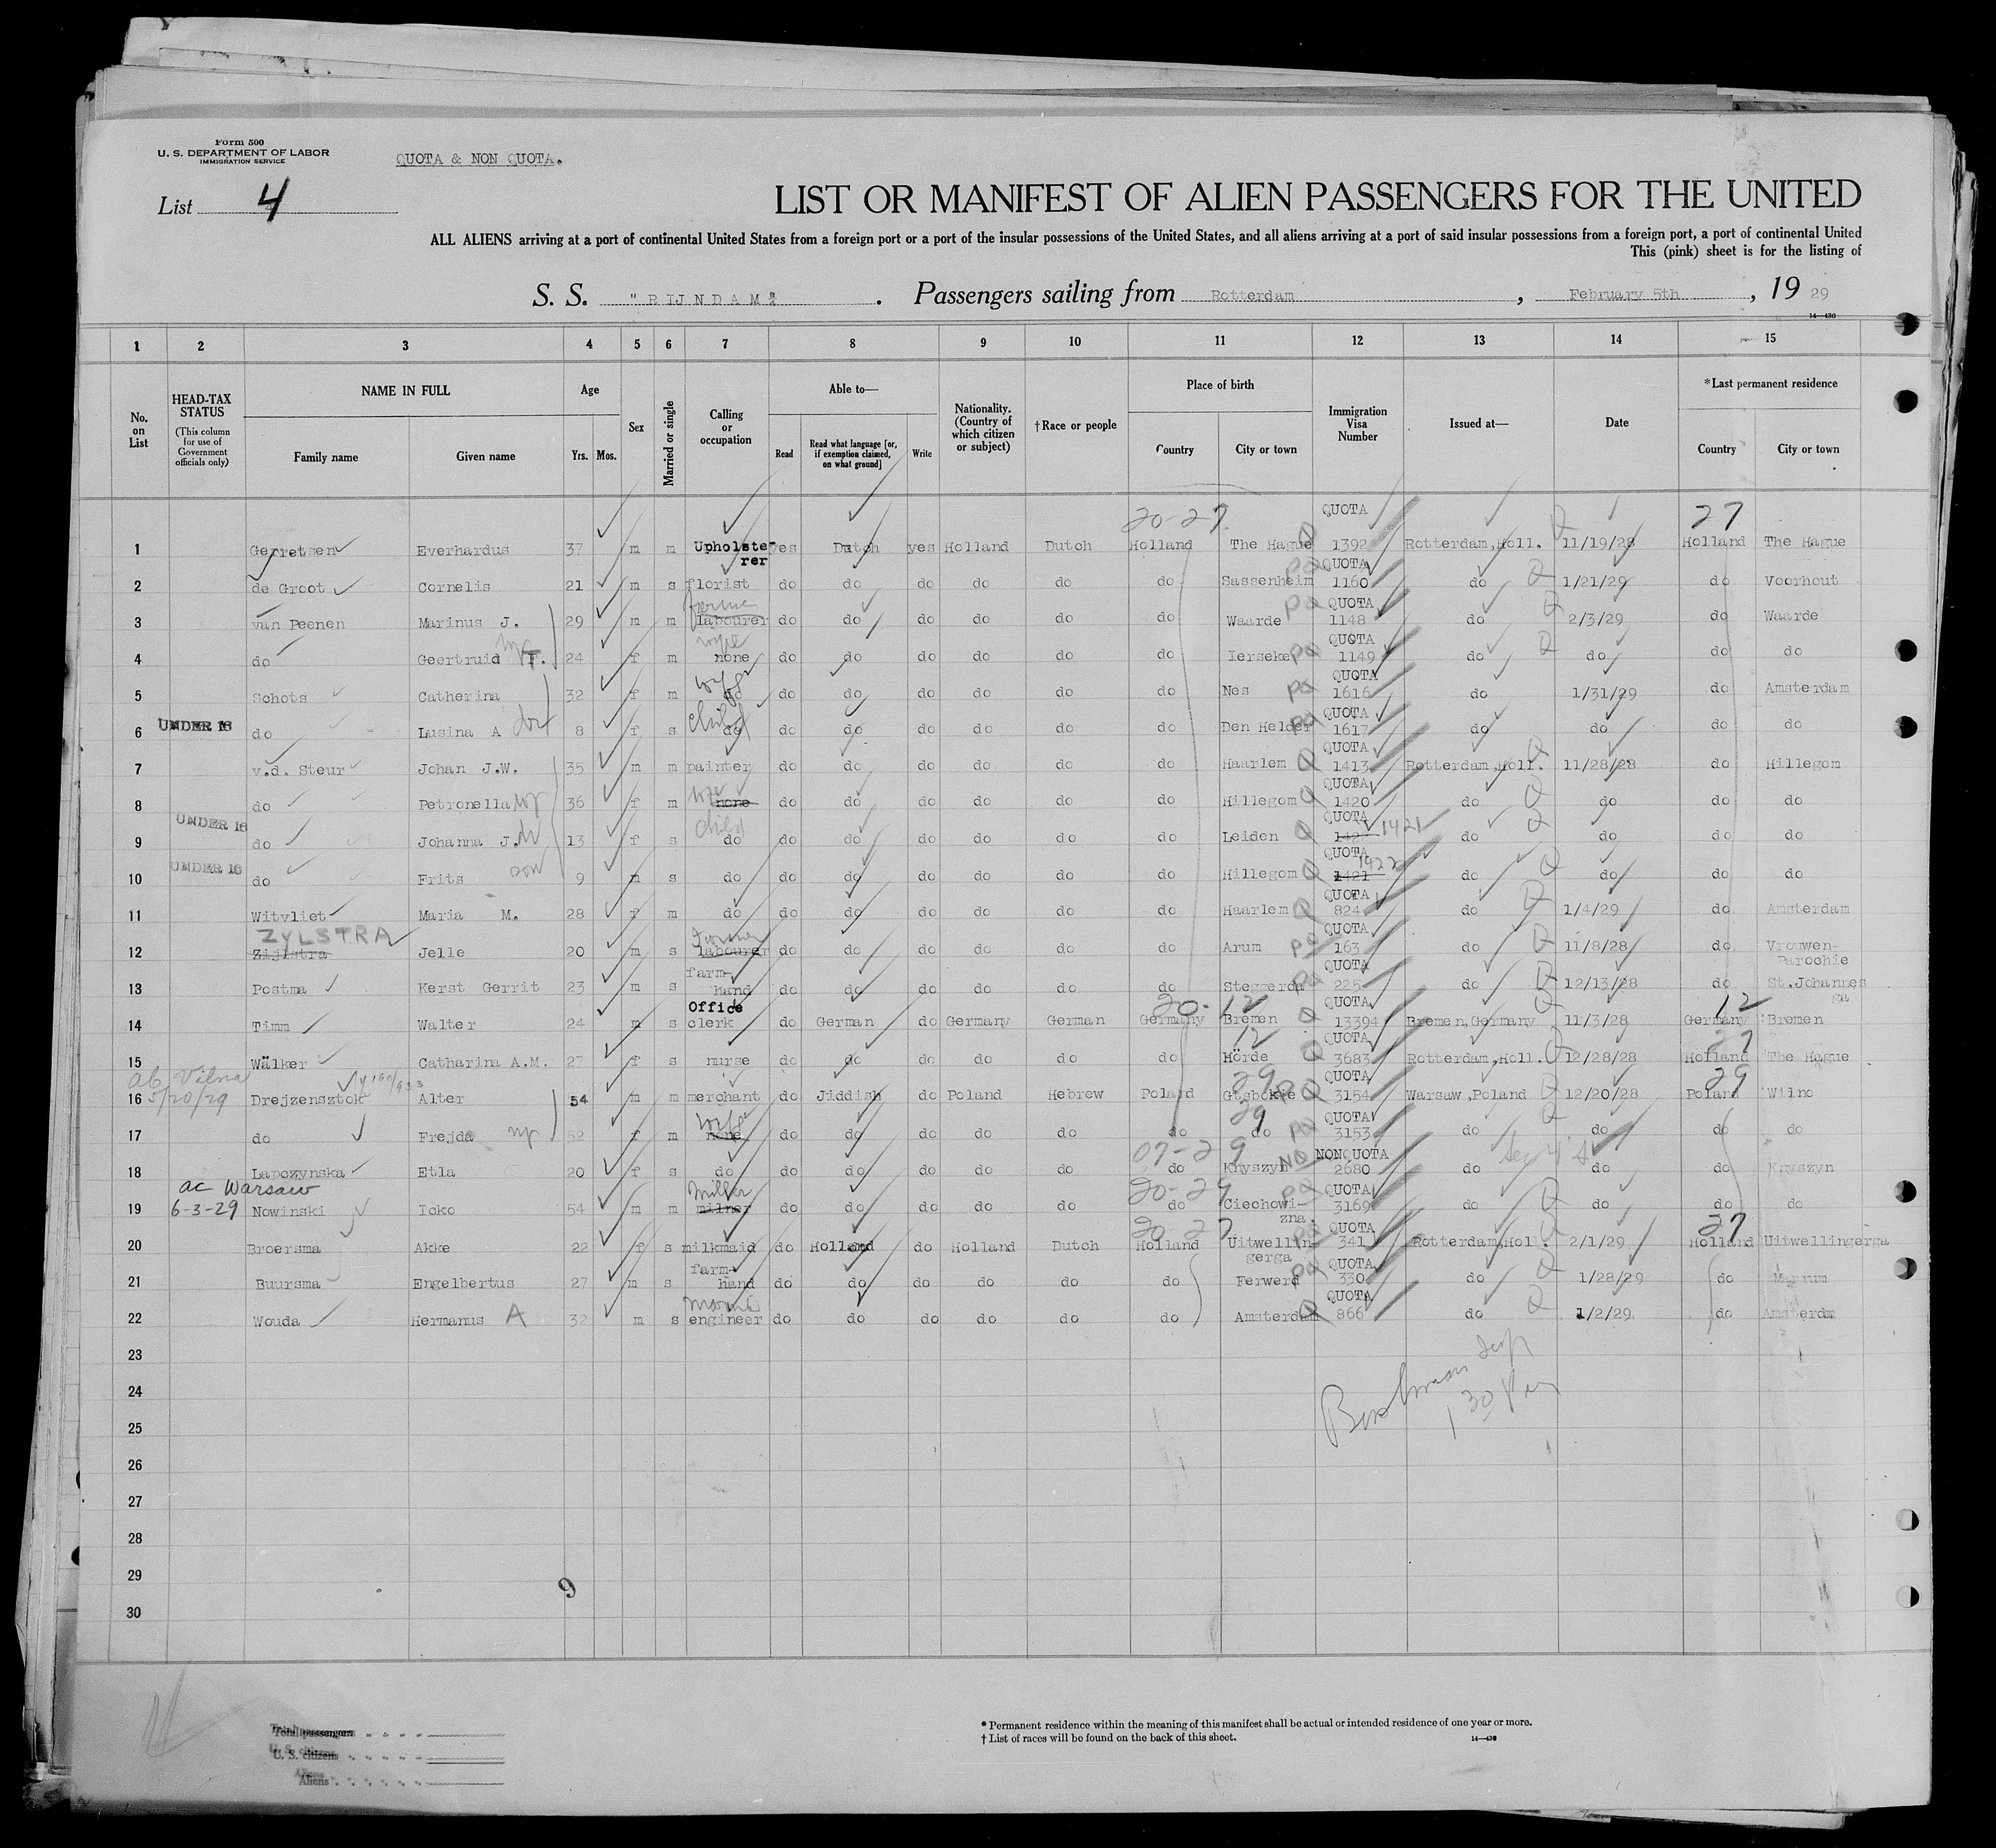 Form 500
U. S. DEPARTMENT OF LABOR
IMMIGRATION SERVICE
QUOTA & NON QUOTA.
List 4
LIST OR MANIFEST OF ALIEN PASSENGERS FOR THE UNITED
ALL ALIENS arriving at a port of continental United States from a foreign port or a port of the insular possessions of the United States, and all aliens arriving at a port of said insular possessions from a foreign port, a port of continental United
This (pink) sheet is for the listing of
S. S. "RIJNDAM". Passengers sailing from Rotterdam, February 5th, 1929
14—430
1 2 3 4 5 6 7 8 9 10 11 12 13 14 15
No. on List
HEAD-TAX STATUS (This column for use of Government officials only)
NAME IN FULL Family name Given name
Age Yrs. Mos.
Sex
Married or single
Calling or occupation
Able to— Read Read what language [or, if exemption claimed, on what ground] Write
Nationality. (Country of which citizen or subject)
†Race or people
Place of birth Country City or town
Immigration Visa Number
Issued at—
Date
*Last permanent residence Country City or town
20-27 QUOTA 27
1 Gerretsen Everhardus 37 m m Upholsterer yes Dutch yes Holland Dutch Holland The Hague Q 1392 Rotterdam, Holl. 11/19/28 Holland The Hague
2 de Groot Cornelis 21 m s florist do do do do do do Sassenheim QUOTA 1160 do 1/21/29 do Voorhout
3 van Peenen Marinus J. 29 m m labourer do do do do do do Waarde QUOTA 1148 do 2/3/29 do Waarde
4 do Geertruid T. 24 f m none wife do do do do do do Ierseke QUOTA 1149 do do do do
5 Schots Catherina 32 f m do wife do do do do do do Nes QUOTA 1616 do 1/31/29 do Amsterdam
UNDER 16
6 do Lusina A 8 f s do child do do do do do do Den Helder QUOTA 1617 do do do do
7 v.d. Steur Johan J.W. 35 m m painter do do do do do do Haarlem Q QUOTA 1413 Rotterdam, Holl. 11/28/28 do Hillegom
8 do Petronella 36 f m none do do do do do do Hillegom Q QUOTA 1420 do do do do
UNDER 16
9 do Johanna J. 13 f s do child do do do do do do Leiden Q QUOTA 1421 do do do do
UNDER 16
10 do Frits son 9 m s do do do do do do do Hillegom Q QUOTA 1421 1422 do do do do
11 Witvliet Maria M. 28 f m do do do do do do do Haarlem Q QUOTA 824 do 1/4/29 do Amsterdam
ZYLSTRA
12 Zijlstra Jelle 20 m s labourer do do do do do do Arum QUOTA 163 do 11/8/28 do Vrouwen-Parochie
13 Postma Kerst Gerrit 23 m s farm-hand do do do do do do Steggerda QUOTA 225 do 12/13/28 do St.Johannesga
20-12 12
14 Timm Walter 24 m s Office clerk do German do Germany German Germany Bremen Q QUOTA 13394 Bremen, Germany 11/3/28 Germany Bremen
12 27
15 Wälker Catharina A.M. 27 f s nurse do do do do do do Hörde Q QUOTA 3683 Rotterdam, Holl. 12/28/28 Holland The Hague
Vilna 5/20/29 29 29
16 Drejzensztok Alter 54 m m merchant do Jiddish do Poland Hebrew Poland QUOTA 3154 Warsaw, Poland 12/20/28 Poland Wilno
29
17 do Frejda 52 f m none wife do do do do do do do QUOTA 3153 do do do do
07-29
18 Lapozynska Etla 20 f s do do do do do do do Knyszyn NONQUOTA 2680 do do do Knyszyn
ac Warsaw 6-3-29 20-29
19 Nowinski Icko 54 m m milner Miller do do do do do do Ciechowizna. QUOTA 3169 do do do do
20-27 27
20 Broersma Akke 22 f s milkmaid do Holland do Holland Dutch Holland Uitwellingerga QUOTA 341 Rotterdam, Holl. 2/1/29 Holland Uitwellingerga
21 Buursma Engelbertus 27 m s farm-hand do do do do do do Ferwerd QUOTA 330 do 1/28/29 do
22 Wouda Hermanus A 32 m s engineer do do do do do do Amsterdam Q QUOTA 866 do 1/2/29 do Amsterdam
23
24
25
26
27
28
29
30
9
Total passengers
U. S. citizens
Aliens
* Permanent residence within the meaning of this manifest shall be actual or intended residence of one year or more.
† List of races will be found on the back of this sheet.
14—430